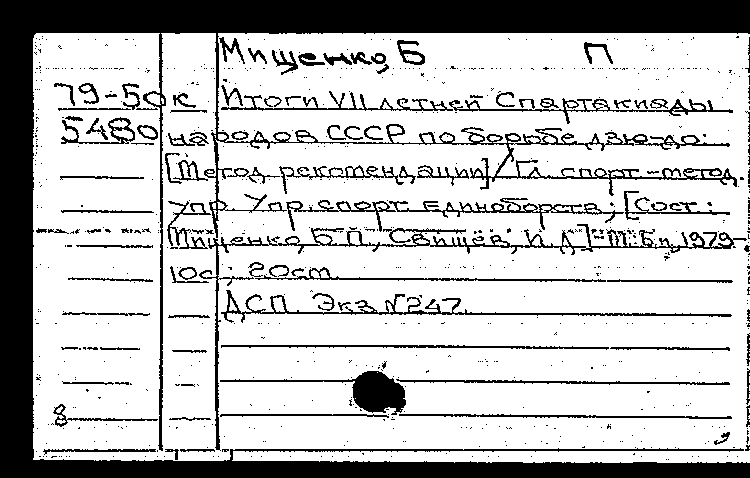 Мищенко Б П
79-50к Итоги VII летней Спартакиады
5480 народов СССР по борьбе дзю-до:
[Метод. рекомендации] / Гл. спорт.-метод.
упр. Упр. спорт. единоборств; [Сост.:
Мищенко, Б.П., Свищёв, И.Д.] - М.: Б.и, 1979.-
10с; 20см.
ДСП. Экз N247.
8